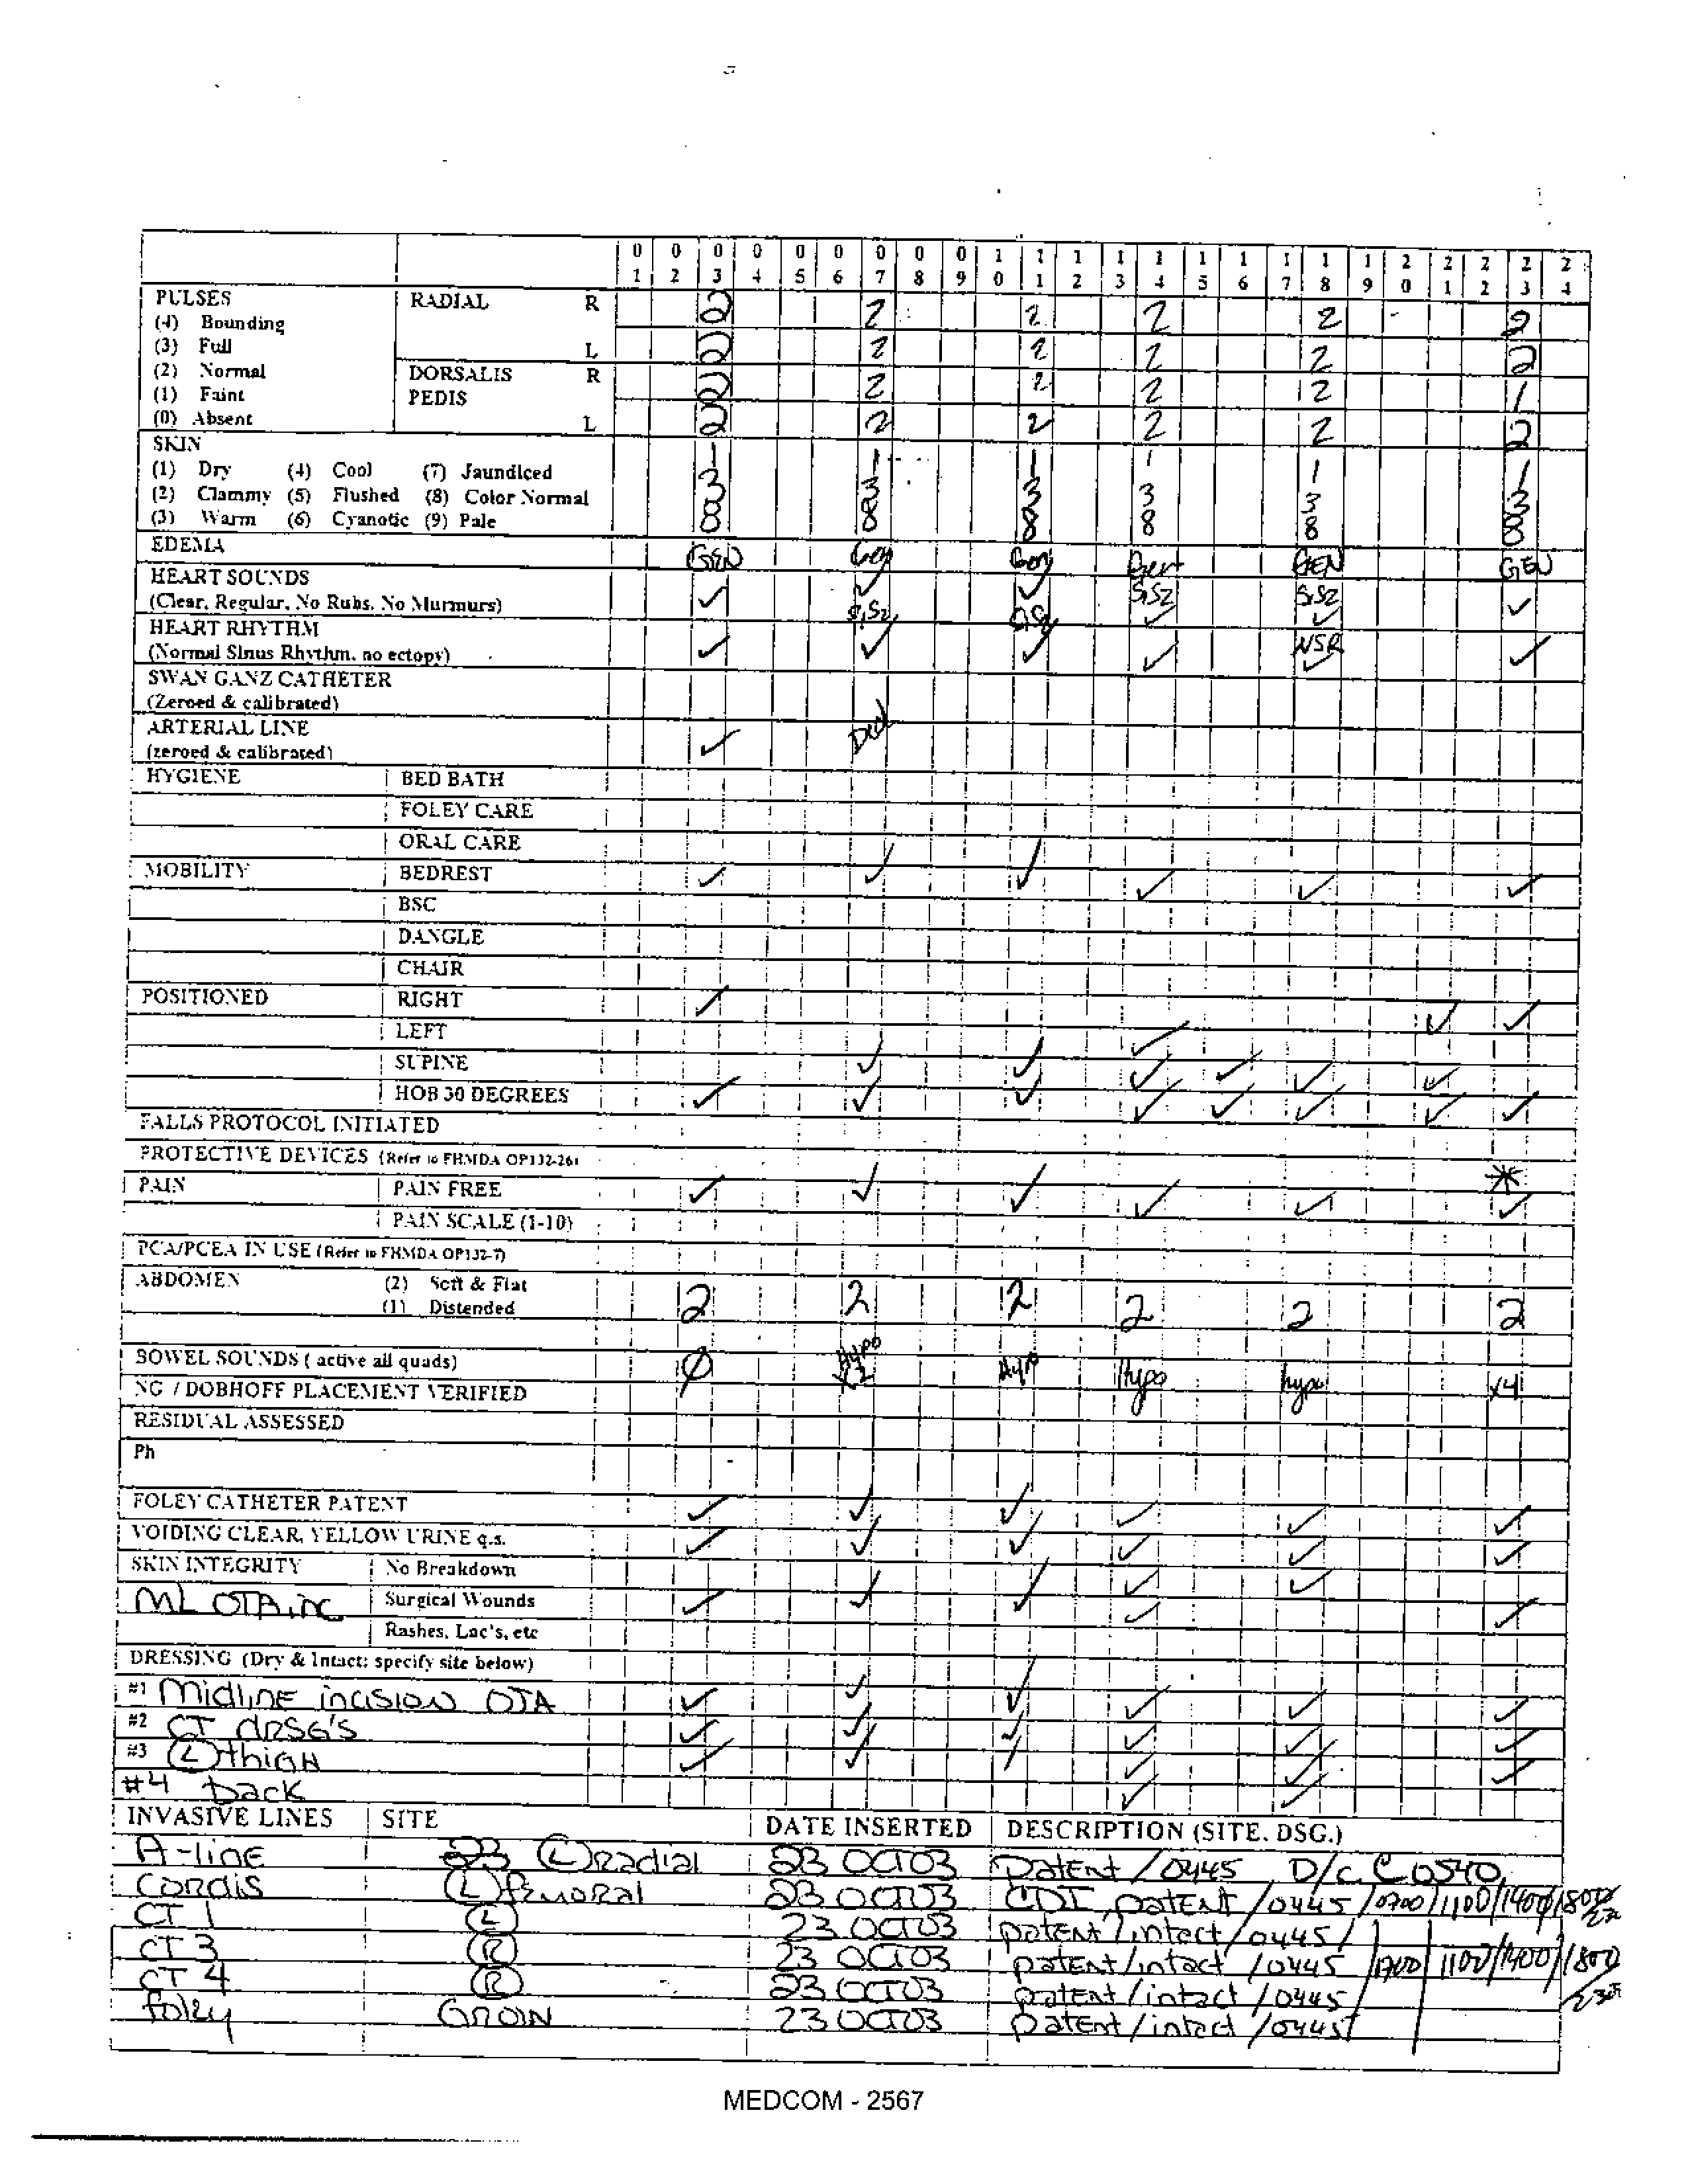 01 02 03 04 05 06 07 08 09 10 11 12 13 14 15 16 17 18 19 20 21 22 23 24
PULSES RADIAL R 2 2 2 2 2 2
(4) Bounding
(3) Full L 2 2 2 2 2 2
(2) Normal DORSALIS R 2 2 2 2 2 1
(1) Faint PEDIS
(0) Absent L 2 2 2 2 2 2
SKIN 1 1 1 1 1 1
(1) Dry (4) Cool (7) Jaundiced 3 3 3 3 3 3
(2) Clammy (5) Flushed (8) Color Normal 8 8 8 8 8 8
(3) Warm (6) Cyanotic (9) Pale
EDEMA GEN Gen Gen Gen GEN GEN
HEART SOUNDS ✓ ✓ ✓ S1S2 S1S2 ✓
(Clear, Regular, No Rubs, No Murmurs) S1S2 S1S2 ✓ ✓
HEART RHYTHM ✓ ✓ ✓ ✓ NSR ✓
(Normal Sinus Rhythm, no ectopy) ✓
SWAN GANZ CATHETER
(Zeroed & calibrated)
ARTERIAL LINE ✓
(zeroed & calibrated)
HYGIENE BED BATH
FOLEY CARE
ORAL CARE
MOBILITY BEDREST ✓ ✓ ✓ ✓ ✓ ✓
BSC
DANGLE
CHAIR
POSITIONED RIGHT ✓ ✓ ✓
LEFT ✓
SUPINE ✓ ✓ ✓ ✓ ✓ ✓
HOB 30 DEGREES ✓ ✓ ✓ ✓ ✓ ✓ ✓ ✓
FALLS PROTOCOL INITIATED
PROTECTIVE DEVICES (Refer to FHMDA OP132-26) *
PAIN PAIN FREE ✓ ✓ ✓ ✓ ✓ ✓
PAIN SCALE (1-10)
PCA/PCEA IN USE (Refer to FHMDA OP132-7)
ABDOMEN (2) Soft & Flat 2 2 2 2 2 2
(1) Distended
BOWEL SOUNDS ( active all quads) Ø Hypo x2 Hyp Hypo hypo x4
NG / DOBHOFF PLACEMENT VERIFIED
RESIDUAL ASSESSED
Ph
FOLEY CATHETER PATENT ✓ ✓ ✓ ✓ ✓ ✓
VOIDING CLEAR, YELLOW URINE q.s. ✓ ✓ ✓ ✓ ✓ ✓
SKIN INTEGRITY No Breakdown ✓ ✓
ML OTA inc Surgical Wounds ✓ ✓ ✓ ✓ ✓
Rashes, Lac's, etc
DRESSING (Dry & Intact: specify site below)
#1 Midline incision OTA ✓ ✓ ✓ ✓ ✓ ✓
#2 CT drsg's ✓ ✓ ✓ ✓ ✓ ✓
#3 (L) thigh ✓ ✓ ✓ ✓ ✓ ✓
#4 back ✓ ✓
INVASIVE LINES SITE DATE INSERTED DESCRIPTION (SITE. DSG.)
A-line (L) Radial 23 OCT03 patent /0445 D/c C 0540
Cordis (L) femoral 23 OCT03 CDI, patent /0445 /0700/1100/1400/1800
CT 1 (L) 23 OCT03 patent/intact/0445/
CT 3 (R) 23 OCT03 patent/intact /0445 /1100/1400/1800
CT 4 (R) 23 OCT03 patent/intact/0445
foley GROIN 23 OCT03 patent/intact /0445
MEDCOM - 2567